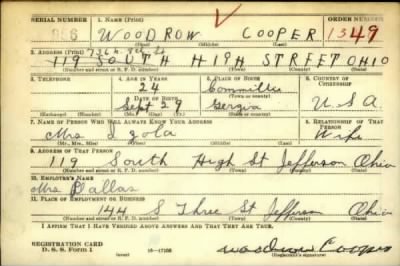 SERIAL NUMBER 1. NAME (Print) ORDER NUMBER
WOODROW COOPER 1349
(First) (Middle) (Last)
2. ADDRESS (Print)
119 SOUTH HIGH STREET OHIO
(Number and street or R. F. D. number) (Town) (County) (State)
3. TELEPHONE 4. AGE IN YEARS 5. PLACE OF BIRTH 6. COUNTRY OF CITIZENSHIP
24
DATE OF BIRTH (Town or county)
Sept 29 Gergia U.S.A.
(Exchange) (No.) (Mo.) (Day) (Yr.) (State or country)
7. NAME OF PERSON WHO WILL ALWAYS KNOW YOUR ADDRESS 8. RELATIONSHIP OF THAT PERSON
Mrs Wife
(Mr., Mrs., Miss) (First) (Middle) (Last)
9. ADDRESS OF THAT PERSON
119 South High St Jefferson Ohio
(Number and street or R. F. D. number) (Town) (County) (State)
10. EMPLOYER'S NAME
Mrs Dallas
11. PLACE OF EMPLOYMENT OR BUSINESS
144 S Three St Jefferson Ohio
(Number and street or R. F. D. number) (Town) (County) (State)
I AFFIRM THAT I HAVE VERIFIED ABOVE ANSWERS AND THAT THEY ARE TRUE.
REGISTRATION CARD
D. S. S. Form 1 Woodrow Cooper
(Registrant's signature)